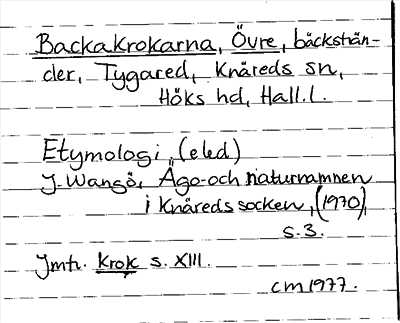 Backakrokarna, Övre, bäcksträn-
der, Tygared, Knäreds sn,
Höks hd, Hall.l.
Etymologi, (eld)
J. Wangö, Ägo- och naturnamnen
i Knäreds socken, (1970),
s.3.
Jmfr. Krok s. XIII.
cm 1977.